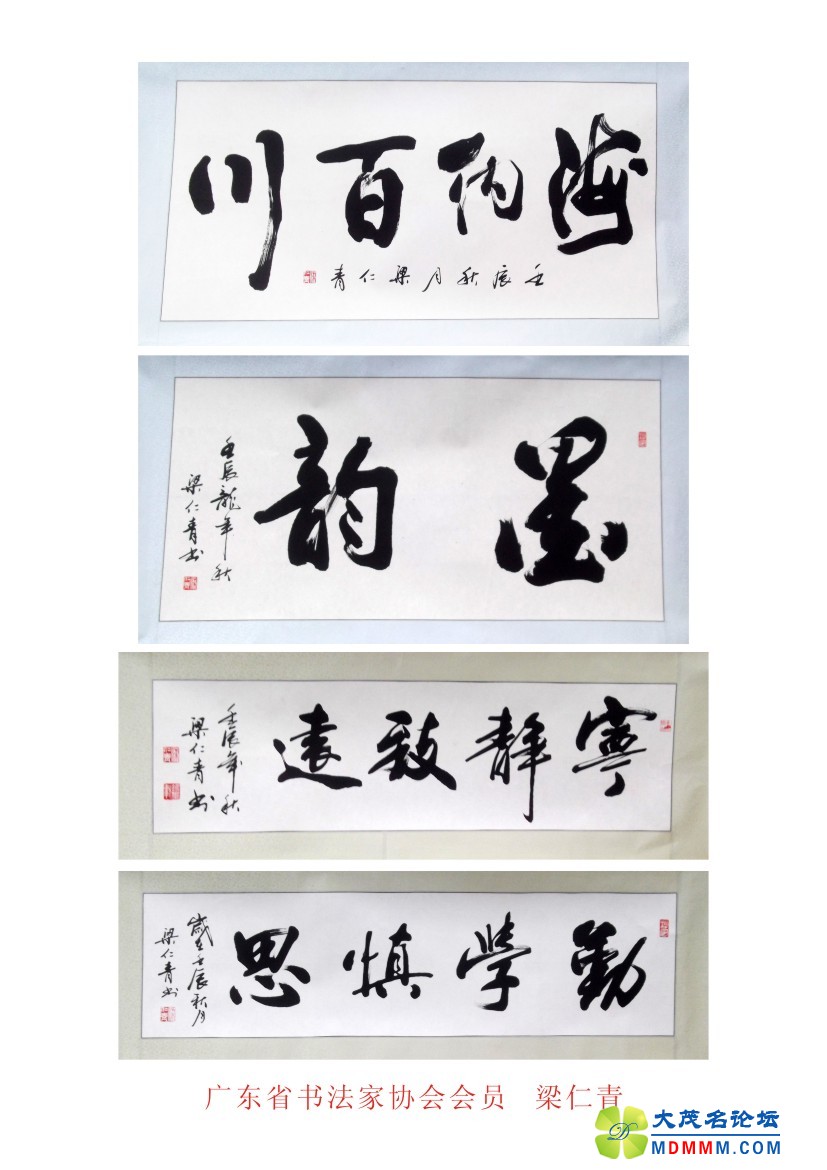 海納百川
壬辰秋月梁仁青
墨韵
壬辰龍年秋
梁仁青书
寧靜致遠
壬辰年秋
梁仁青书
勤學慎思
歲在壬辰秋月
梁仁青书
广东省书法家协会会员 梁仁青
大茂名论坛
MDMMM.COM